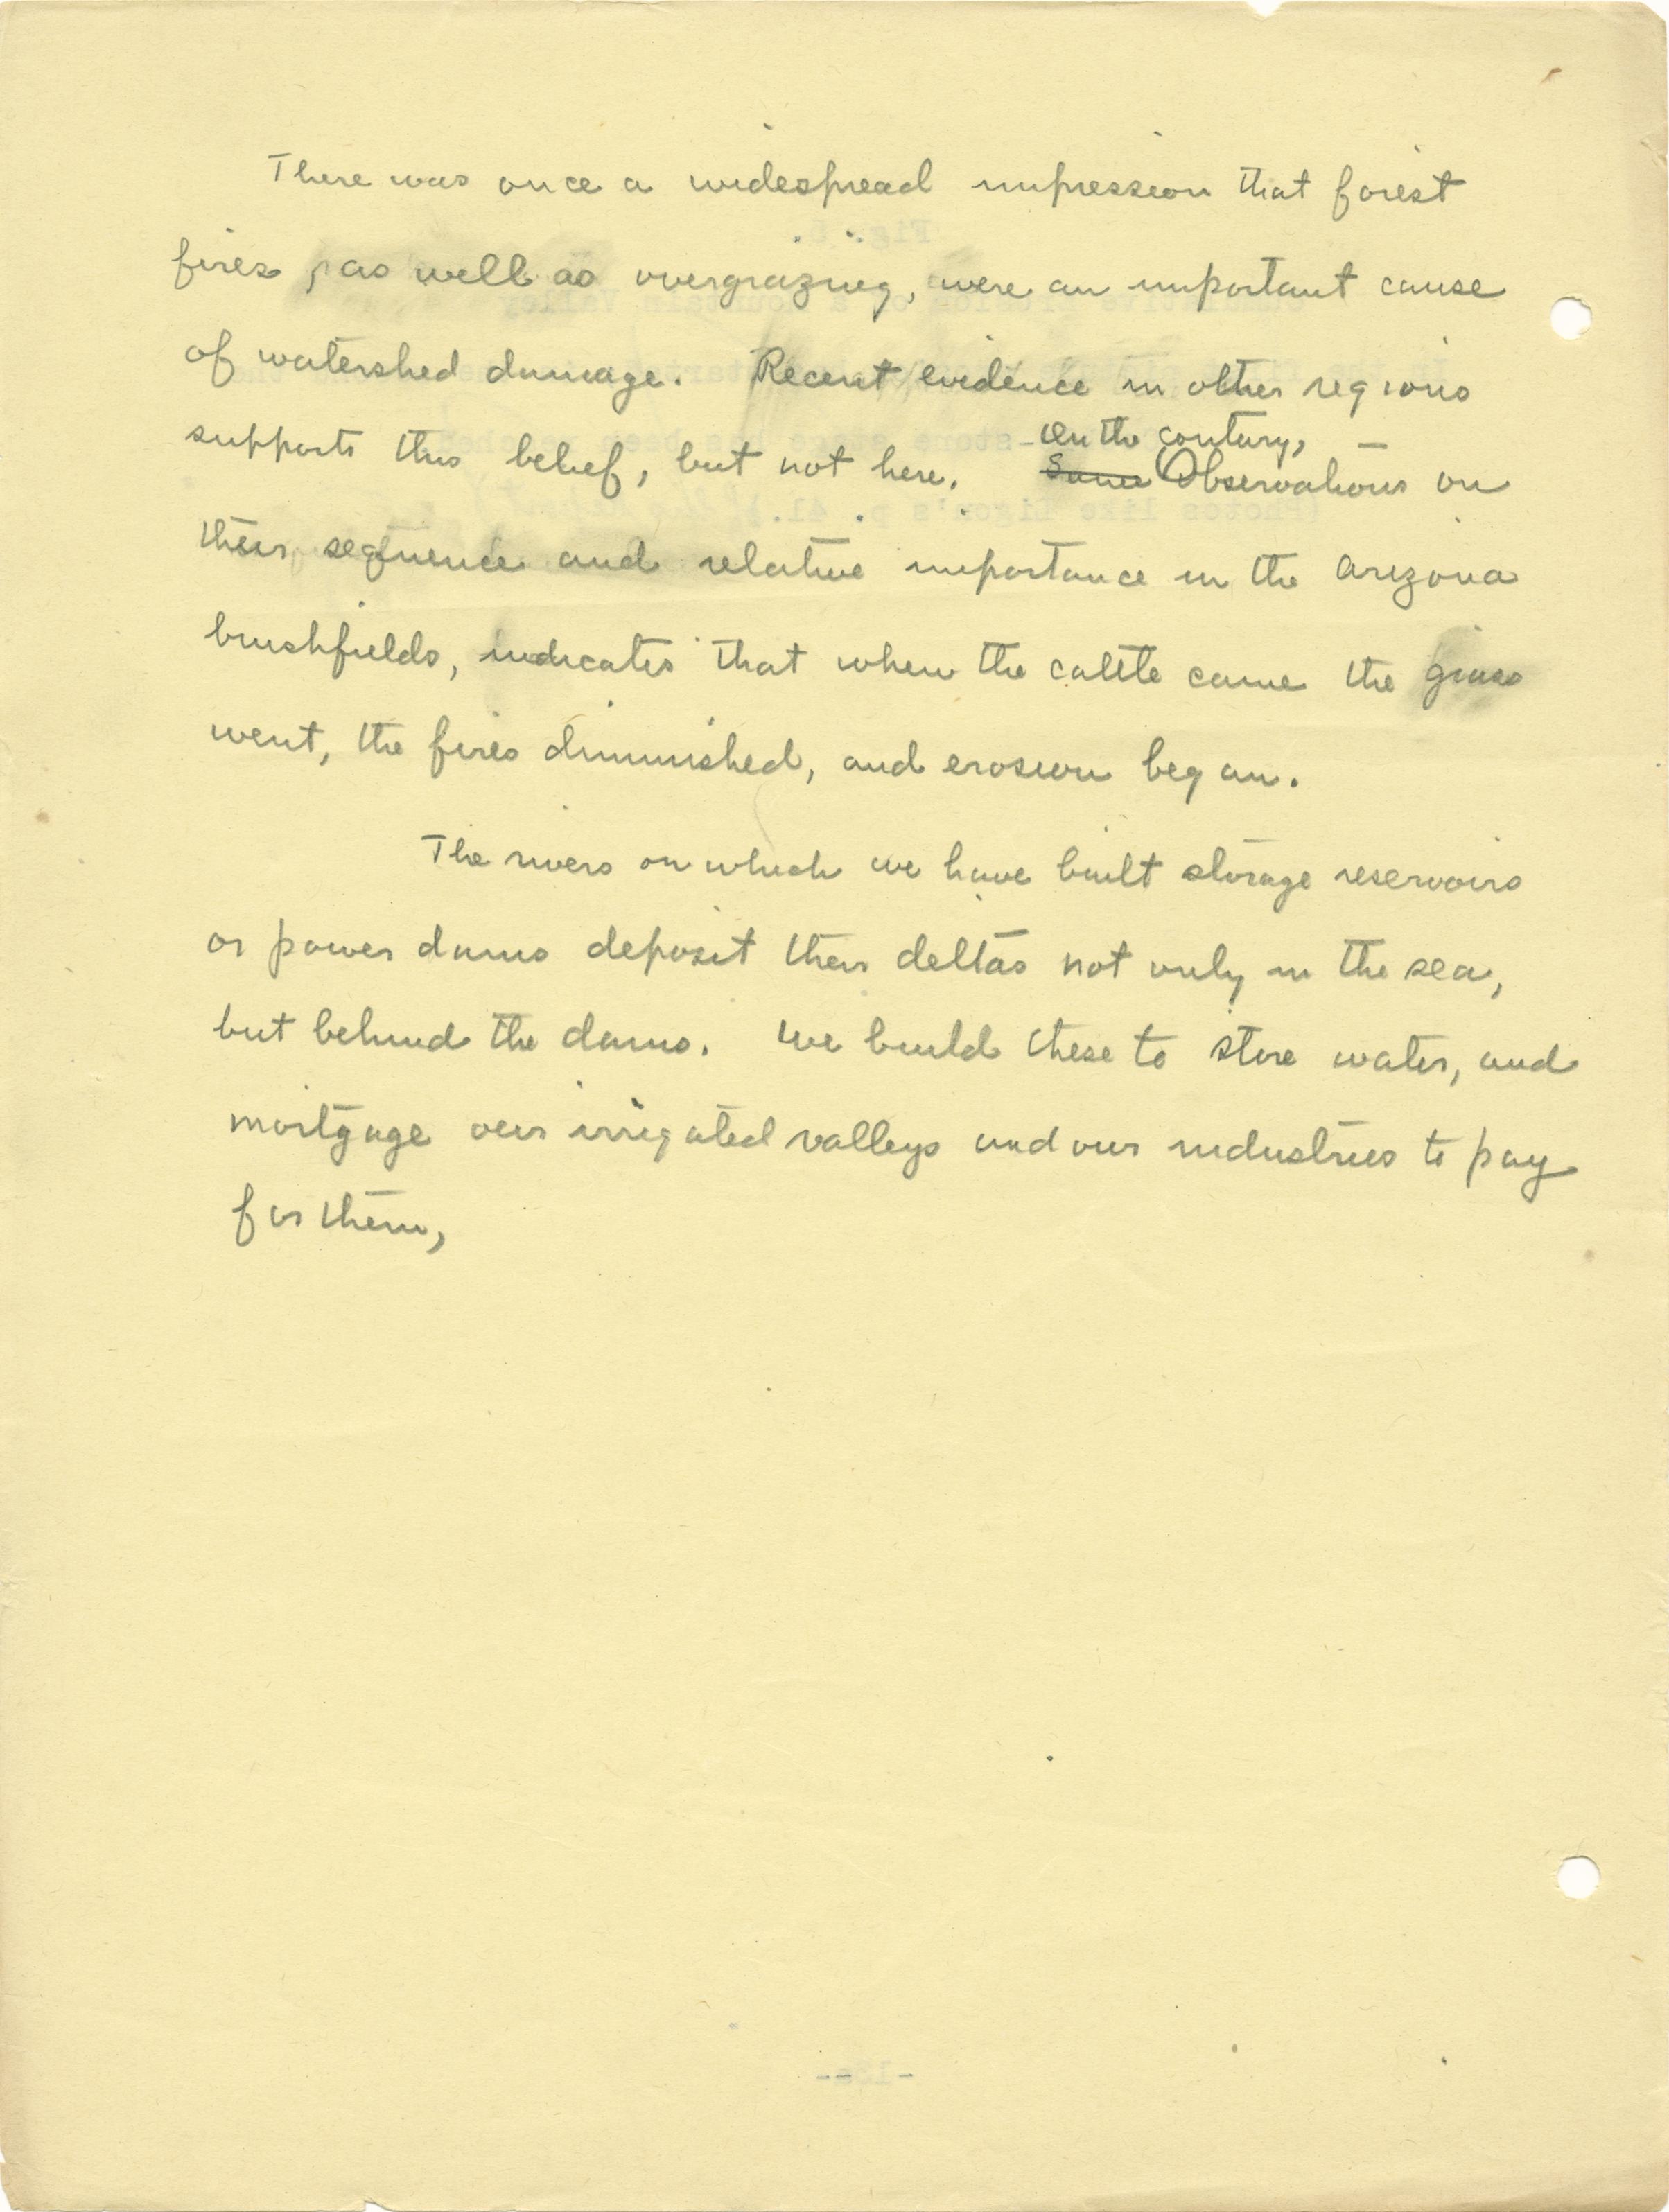 There was once a widespread impression that forest
fires, as well as overgrazing, were an important cause
of watershed damage. Recent evidence in other regions
on the contrary,
supports this belief, but not here. Some Observations on
their sequence and relative importance in the Arizona
brushfields, indicates that when the cattle came the grass
went, the fires diminished, and erosion began.
The rivers on which we have built storage reservoirs
or power dams deposit their deltas not only in the sea,
but behind the dams. We build these to store water, and
mortgage our irrigated valleys and our industries to pay
for them,